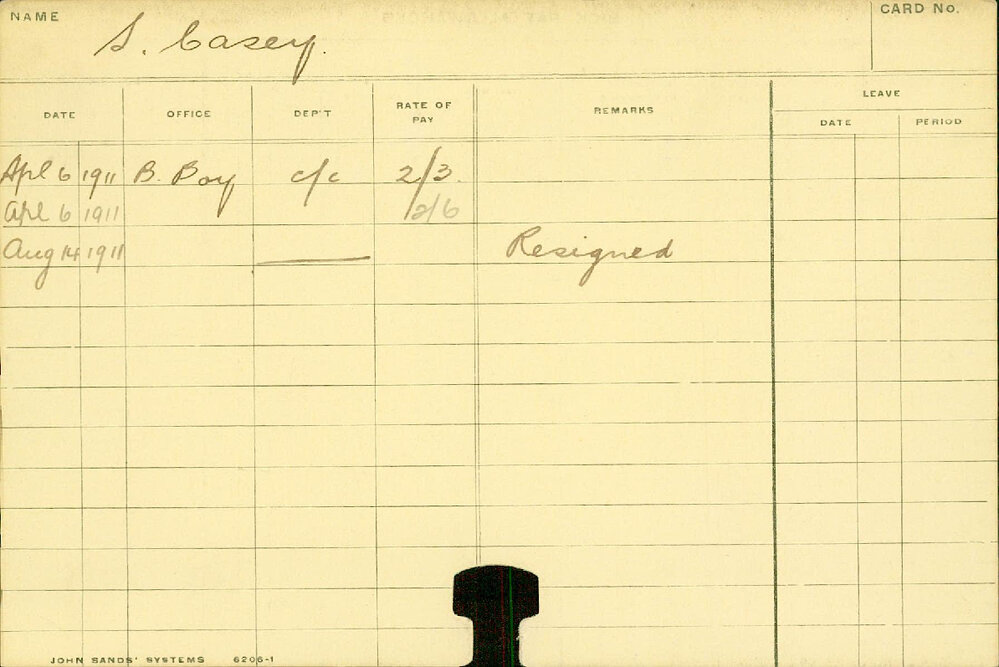 NAME S. Casey. CARD No.
LEAVE
DATE OFFICE DEP'T RATE OF PAY REMARKS DATE PERIOD
Apl 6 1911 B. Boy c/c 2/3.
Apl 6 1911 2/6
Aug 14 1911 Resigned
JOHN SANDS' SYSTEMS 6206-1